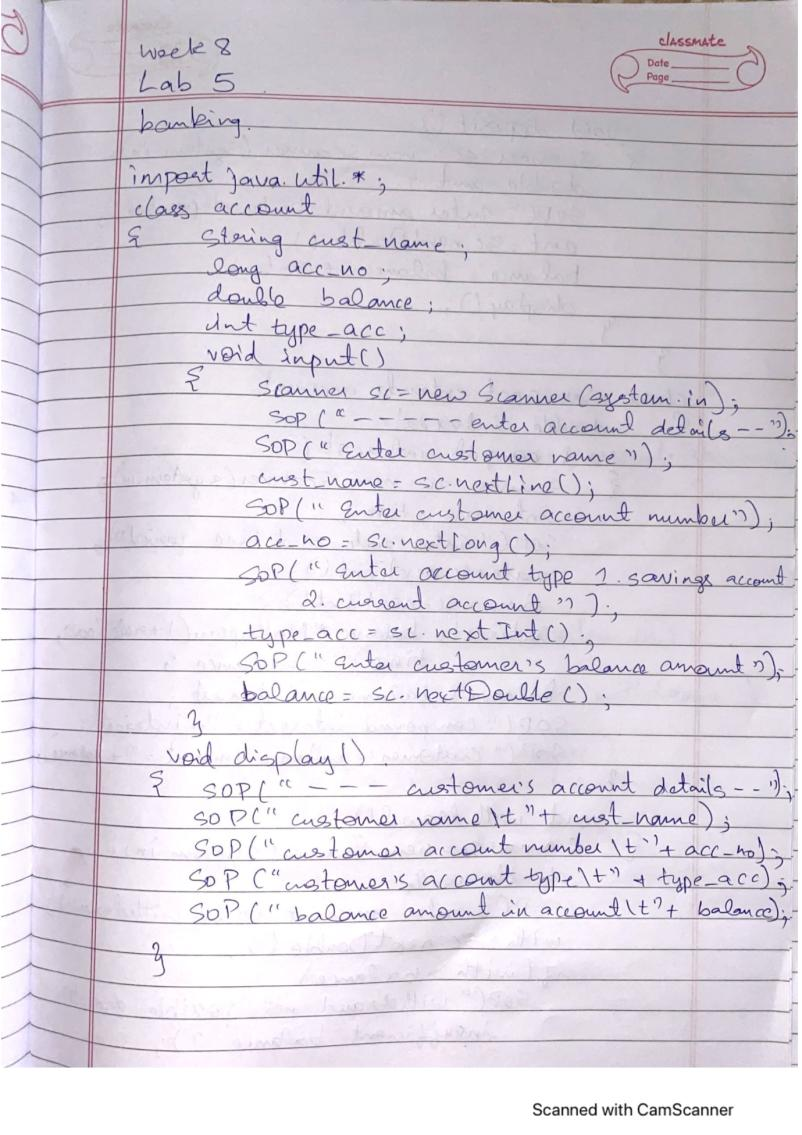 week 8
Lab 5
classmate
Date
Page
banking.
import java.util.*;
class account
{ string cust_name;
long acc_no;
double balance;
int type_acc;
void input()
{ Scanner sc = new Scanner (system.in);
SOP ("----- enter account details --");
SOP (" Enter customer name ");
cust_name = sc.nextLine();
SOP (" Enter customer account number");
acc_no = sc.nextLong();
SOP (" Enter account type 1. savings account
2. current account ");
type_acc = sc.nextInt();
SOP (" Enter customer's balance amount ");
balance = sc.nextDouble();
}
void display()
{ SOP ("--- customer's account details --");
SOP (" customer name \t "+ cust_name);
SOP (" customer account number \t "+ acc_no);
SOP ("customer's account type \t" + type_acc);
SOP (" balance amount in account \t"+ balance);
}
Scanned with CamScanner